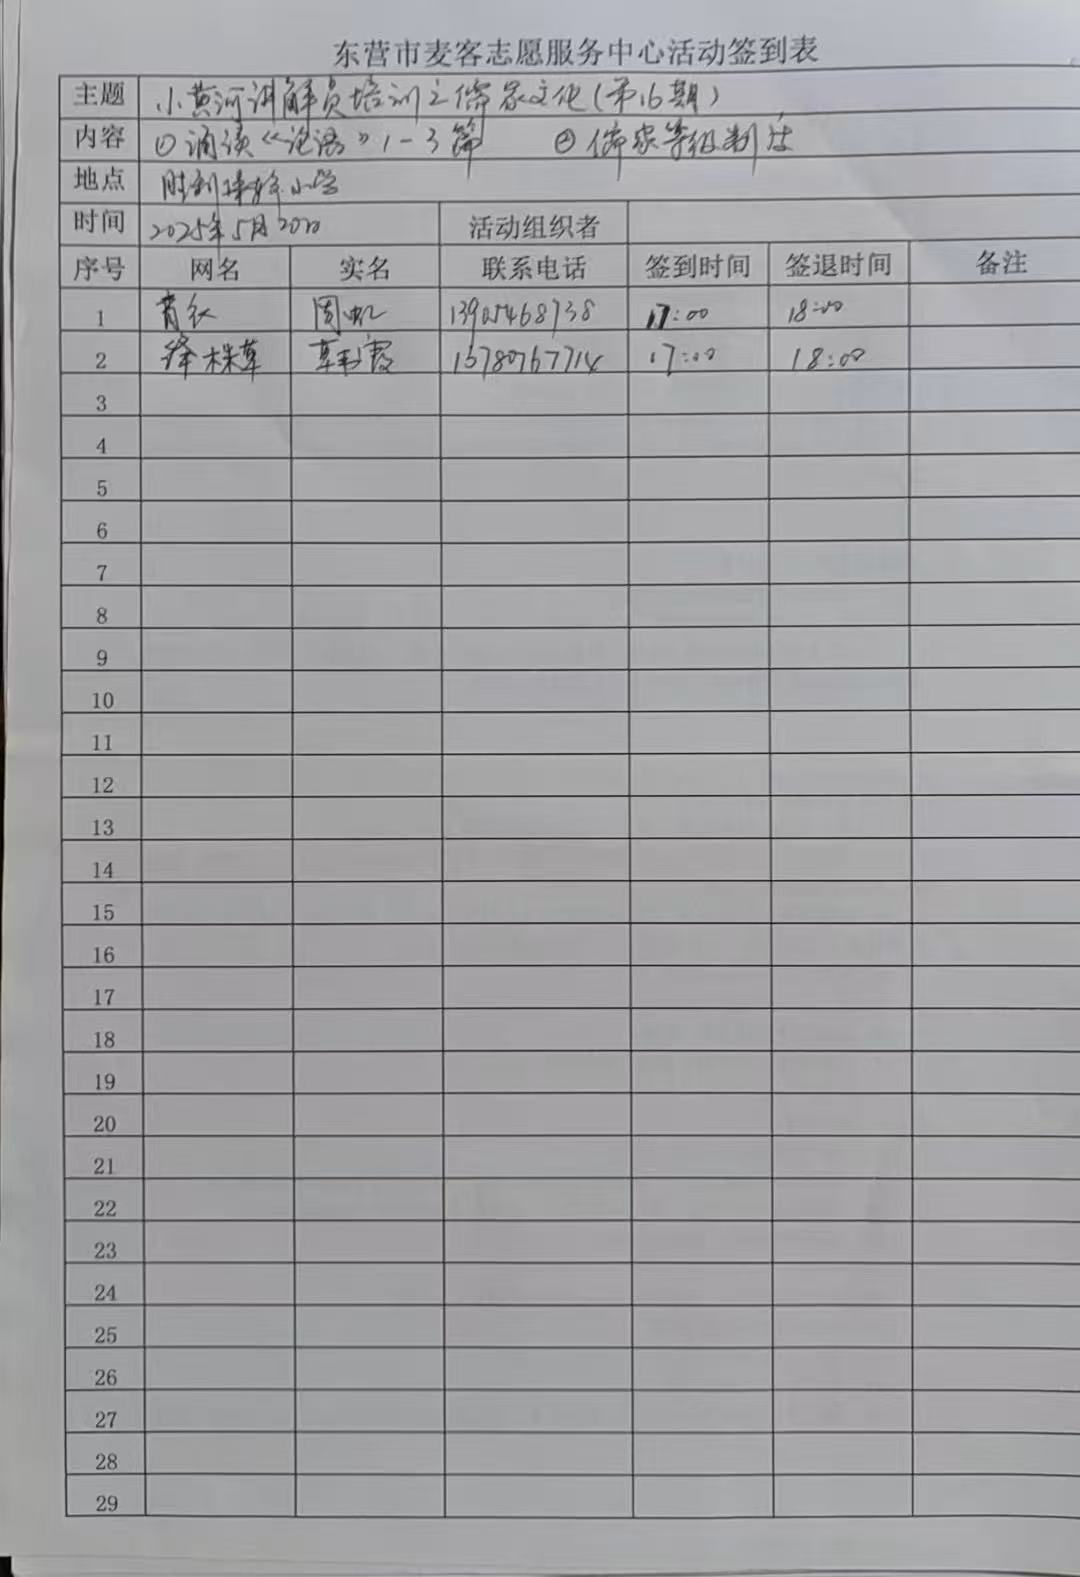 东营市麦客志愿服务中心活动签到表
主题 小黄河讲解员培训之儒家文化(第16期)
内容 ①诵读《论语》1-3篇 ②儒家等级制度
地点 胜利 小学
时间 2025年5月20日 活动组织者
序号 网名 实名 联系电话 签到时间 签退时间 备注
1 青衣 周虹 13905468738 17:00 18:00
2 绛株草 霞 15780767714 17:00 18:00
3
4
5
6
7
8
9
10
11
12
13
14
15
16
17
18
19
20
21
22
23
24
25
26
27
28
29